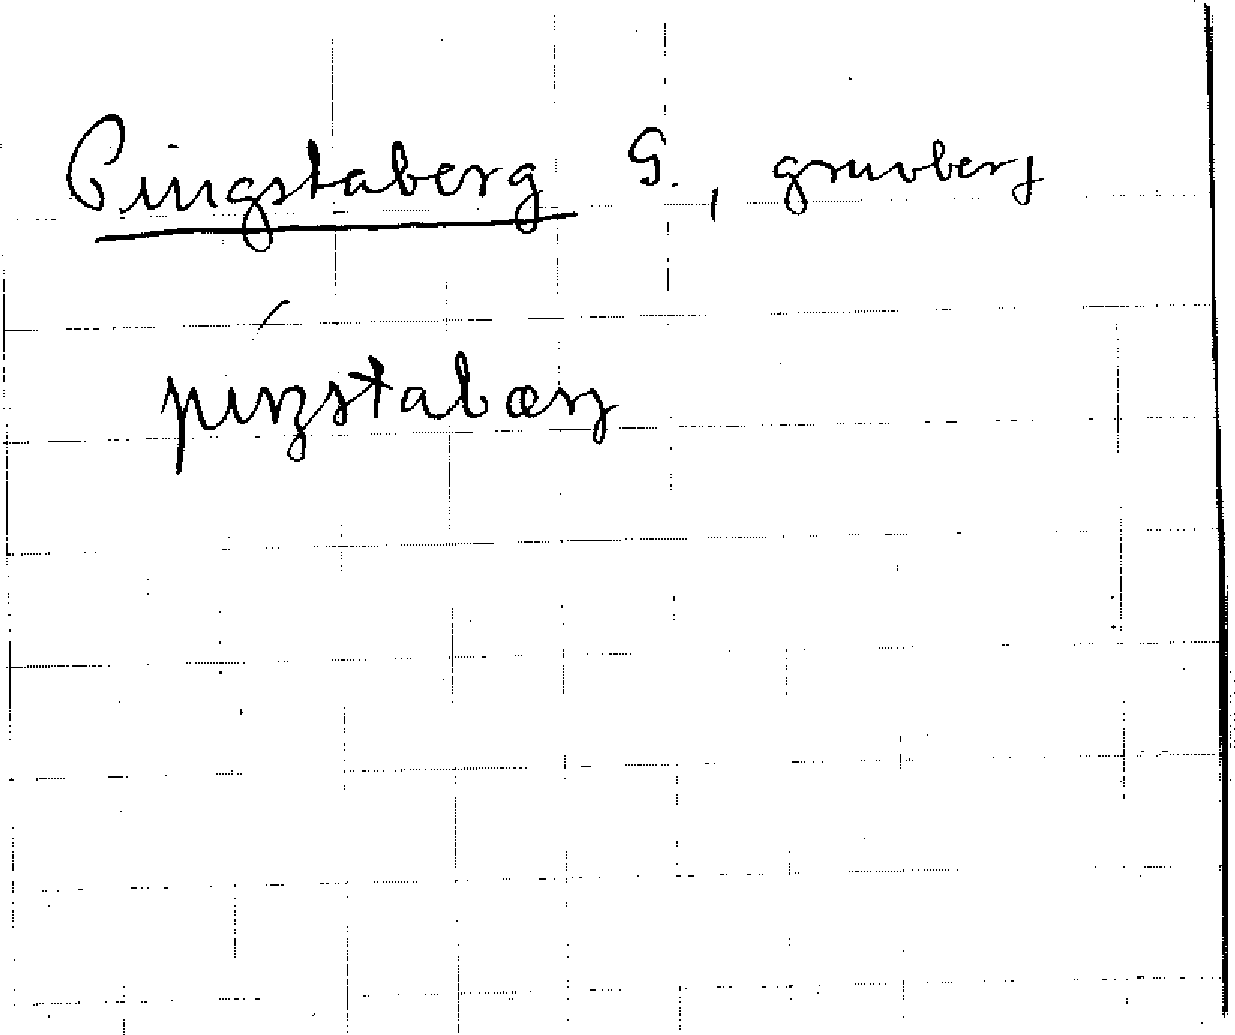 Pingstaberg G., gruvberg
piŋstabærj